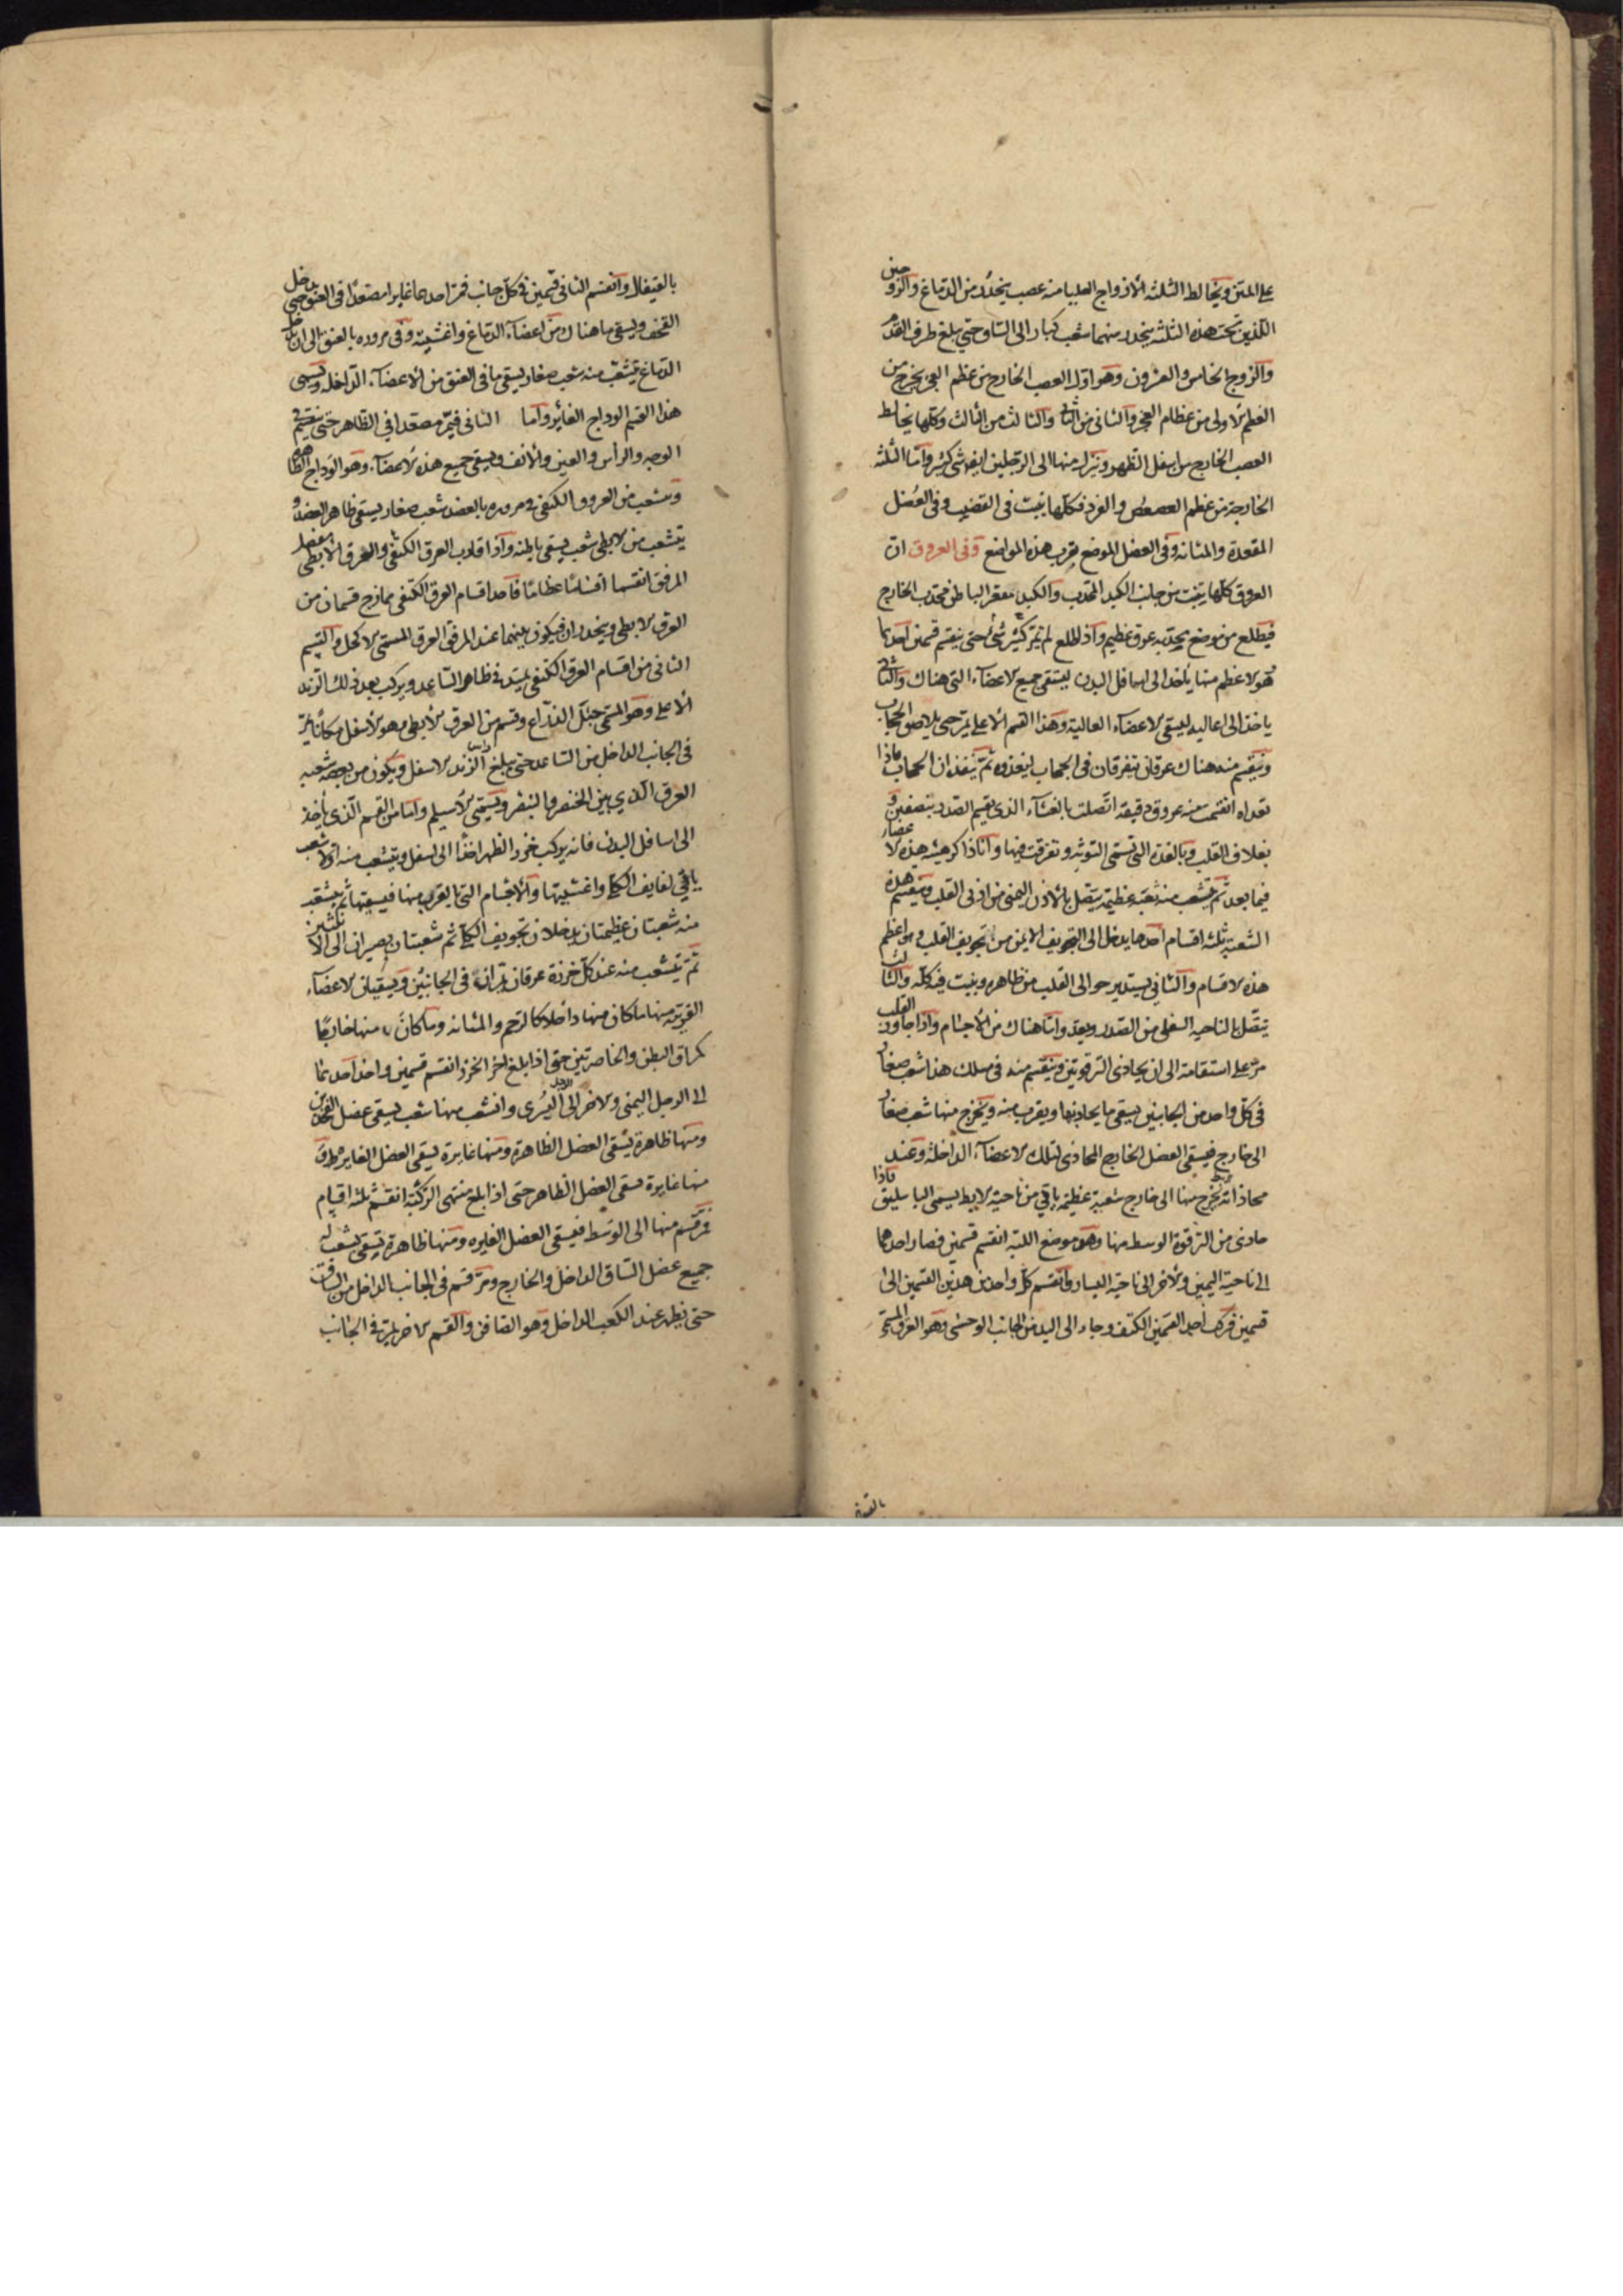 على المتن ويخالط الثلثه الازواج العليا منه عصب ينحدر من الدماغ والزوجين
اللذين تحت هذه الثلثه ينحدر منهما شعب كبار الى الساق حتى يبلغ طرف القدم
والزوج الخامس والعشرون وهو اول العصب الخارج من عظم العجز يخرج من
العظم الاولى من عظام العجز والثانى من الثانى والثالث من الثالث وكلها يخالط
العصب الخارج من اسفل الظهر وينزل منها الى الرجلين ايضا شى كثير واما الثلثه
الخارجة من عظم العصعص والفرد فكلها ينبت فى القضيب وفى العضل
المقعدة والمثانه وفى العضل الموضع بقرب هذه المواضع وفى العروق ان
العروق كلها ينبت من جانب الكبد المحدب والكبد مقعر الباطن محدب الخارج
فيطلع من موضع يحدبه عرق عظيم واذا طلع لم يمر كثير شئ حتى ينقسم قسمين احدهما
هو الاعظم منها ياخذ الى اسافل البدن ليسقى جميع الاعضاء التى هناك والثانى
ياخذ الى اعاليه ليسقى الاعضاء العالية وهذا القسم الاعلى يمر حتى يلاصق الحجاب
وينقسم منه هناك عرقان يتفرقان فى الحجاب ليغذوه ثم ينفذ ان الحجاب فاذا
نفداه انقسمت منه عروق دقيقه اتصلت بالغشاء الذى يقسم الصدر بنصفين و
بغلاف القلب وبالغدة التى تسمى التوثه وتفرقت فيها وانا ذاكر هيئه هذه الاعضاء
فيما بعد ثم يتشعب منه شعبة عظيمة يتصل بالاذن اليمنى من اذنى القلب وينقسم هذه
الشعبة ثلثه اقسام احدها يدخل الى التجويف الايمن من تجويف القلب وهو اعظم
هذه الاقسام والثانى يستدير حوالى القلب من ظاهره وينبت فيه كله والثالث
يتصل بالناحيه السفلى من الصدر ويغذو ما هناك من الاجسام واذا جاوز القلب
مر على استقامة الى ان يحاذى الترقوتين وينقسم منه فى مسلك هذا شعب صغار
فى كل واحد من الجانبين يسقى ما يحاذيها ويقرب منه ويخرج منها شعب صغار
الى خارج فيسقى العضل الخارج المحاذى لتلك الاعضاء الداخلة وعند
محاذاته يخرج منها الى خارج شعبة عظيمه ياتى من ناحية الابط يسمى الباسليق فاذا
حاذى من الترقوة الوسط منها وهو موضع اللبة انقسم قسمين فصار احدهما
الى ناحية اليمين والاخر الى ناحية اليسار وانقسم كل واحد من هذين القسمين الى
قسمين فركب احد القسمين الكتف وجاء الى اليد من الجانب الوحشى وهو العرق المسمى
بالقيفال
بالقيفال وانقسم الثانى قسمين فى كل جانب فمر احدهما غايرا مصعدا فى العنق حتى يدخل
القحف ويسقى ما هناك من اعضاء الدماغ واغشيته وفى مروره بالعنق الى ان يدخل
الدماغ يتشعب منه شعب صغار يسقى ما فى العنق من الاعضاء الداخله ويسمى
هذا القسم الوداج الغاير واما الثانى فيمر مصعدا فى الظاهر حتى ينقسم فى
الوجه والراس والعين والانف ويسقى جميع هذه الاعضاء وهو الوداج الظاهر
ويتشعب من العروق الكتفى فى مروره بالعضد شعب صغار يسقى ظاهر العضد و
يتشعب من الابطى شعب يسقى باطنه واذا قارب العرق الكتفى والعرق الابطى مفصل
المرفق انقسما اقساما عظاما فاحد اقسام العرق الكتفى يمازج قسمان من
العرق الابطى وينحدران فيكون بينهما عند المرفق العرق المسمى الاكحل والقسم
الثانى من اقسام العرق الكتفى يمتد فى ظاهر الساعد ويركب بعد ذلك الزند
الاعلى وهو المسمى حبل الذراع وقسم من العرق الابطى وهو الاسفل مكانا يمر
فى الجانب الداخل من الساعد حتى يبلغ راس الزند الاسفل ويكون من بعضه شعبه
العرق الذى بين الخنصر والبنصر ويسمى الاسيلم واما من القسم الذى ياخذ
الى اسافل البدن فانه يركب خرز الظهر اخذا الى اسفل ويتشعب منه اولا شعب
ياتى لفايف الكلى واغشيتها والاجسام التى بالقرب منها فيسقيها ثم يتشعب
منه شعبتان عظيمتان يدخلان تجويف الكلى ثم شعبتان يصيران الى الانثيين
ثم يتشعب منه عند كل خرزة عرقان يمران فى الجانبين ويسقيان الاعضاء
القريبة منها ما كان منها داخلا كالرحم والمثانه وما كان منها خارجا
كمراق البطن والخاصرتين حتى اذا بلغ اخر الخرز انقسم قسمين واخذ احدهما
الى الرجل اليمنى والاخر الى الرجل اليسرى وانشعب منها شعب يسقى عضل الفخذين
ومنها ظاهرة يسقى العضل الظاهرة ومنها غايرة يسقى العضل الغايره
منها غايرة يسقى العضل الظاهر حتى اذا بلغ منتهى الركبة انقسم ثلثه اقسام
فمر قسم منها الى الوسط فيسقى العضل الغايره ومنها ظاهرة يسقى بشعب له
جميع عضل الساق الداخل والخارج ومر قسم فى الجانب الداخل من الساق
حتى يظهر عند الكعب الداخل وهو الصافن والقسم الاخر يمر فى الجانب